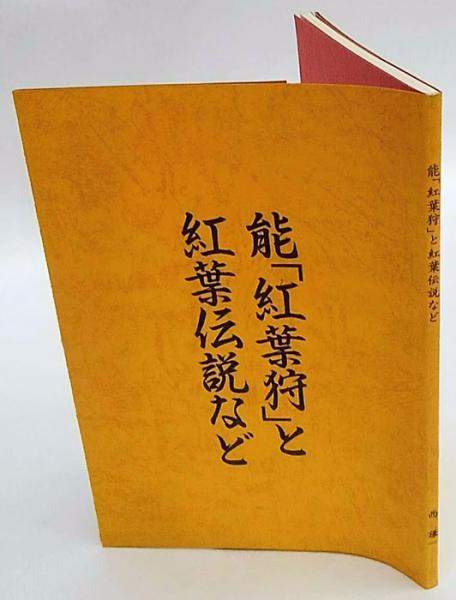 能「紅葉狩」と
紅葉伝説など
能「紅葉狩」と紅葉伝説など
西